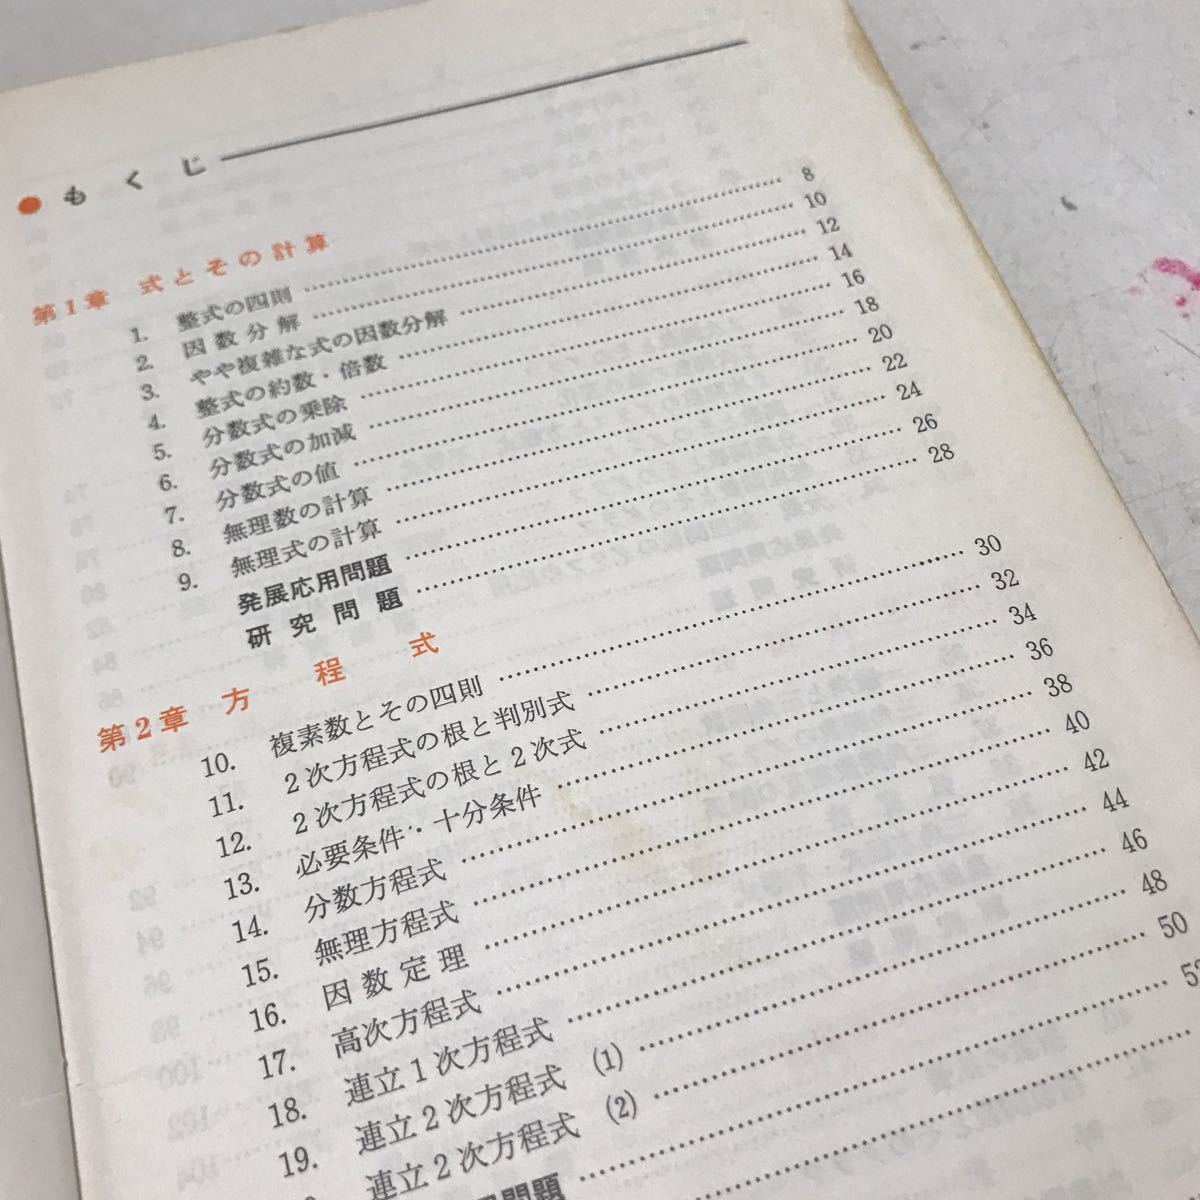 ● もくじ
第1章 式とその計算
1. 整式の四則 8
2. 因数分解 10
3. やや複雑な式の因数分解 12
4. 整式の約数・倍数 14
5. 分数式の乗除 16
6. 分数式の加減 18
7. 分数式の値 20
8. 無理数の計算 22
9. 無理式の計算 24
発展応用問題 26
研究問題 28
第2章 方程式
10. 複素数とその四則 30
11. 2次方程式の根と判別式 32
12. 2次方程式の根と2次式 34
13. 必要条件・十分条件 36
14. 分数方程式 38
15. 無理方程式 40
16. 因数定理 42
17. 高次方程式 44
18. 連立1次方程式 46
19. 連立2次方程式 (1) 48
連立2次方程式 (2) 50
問題 52